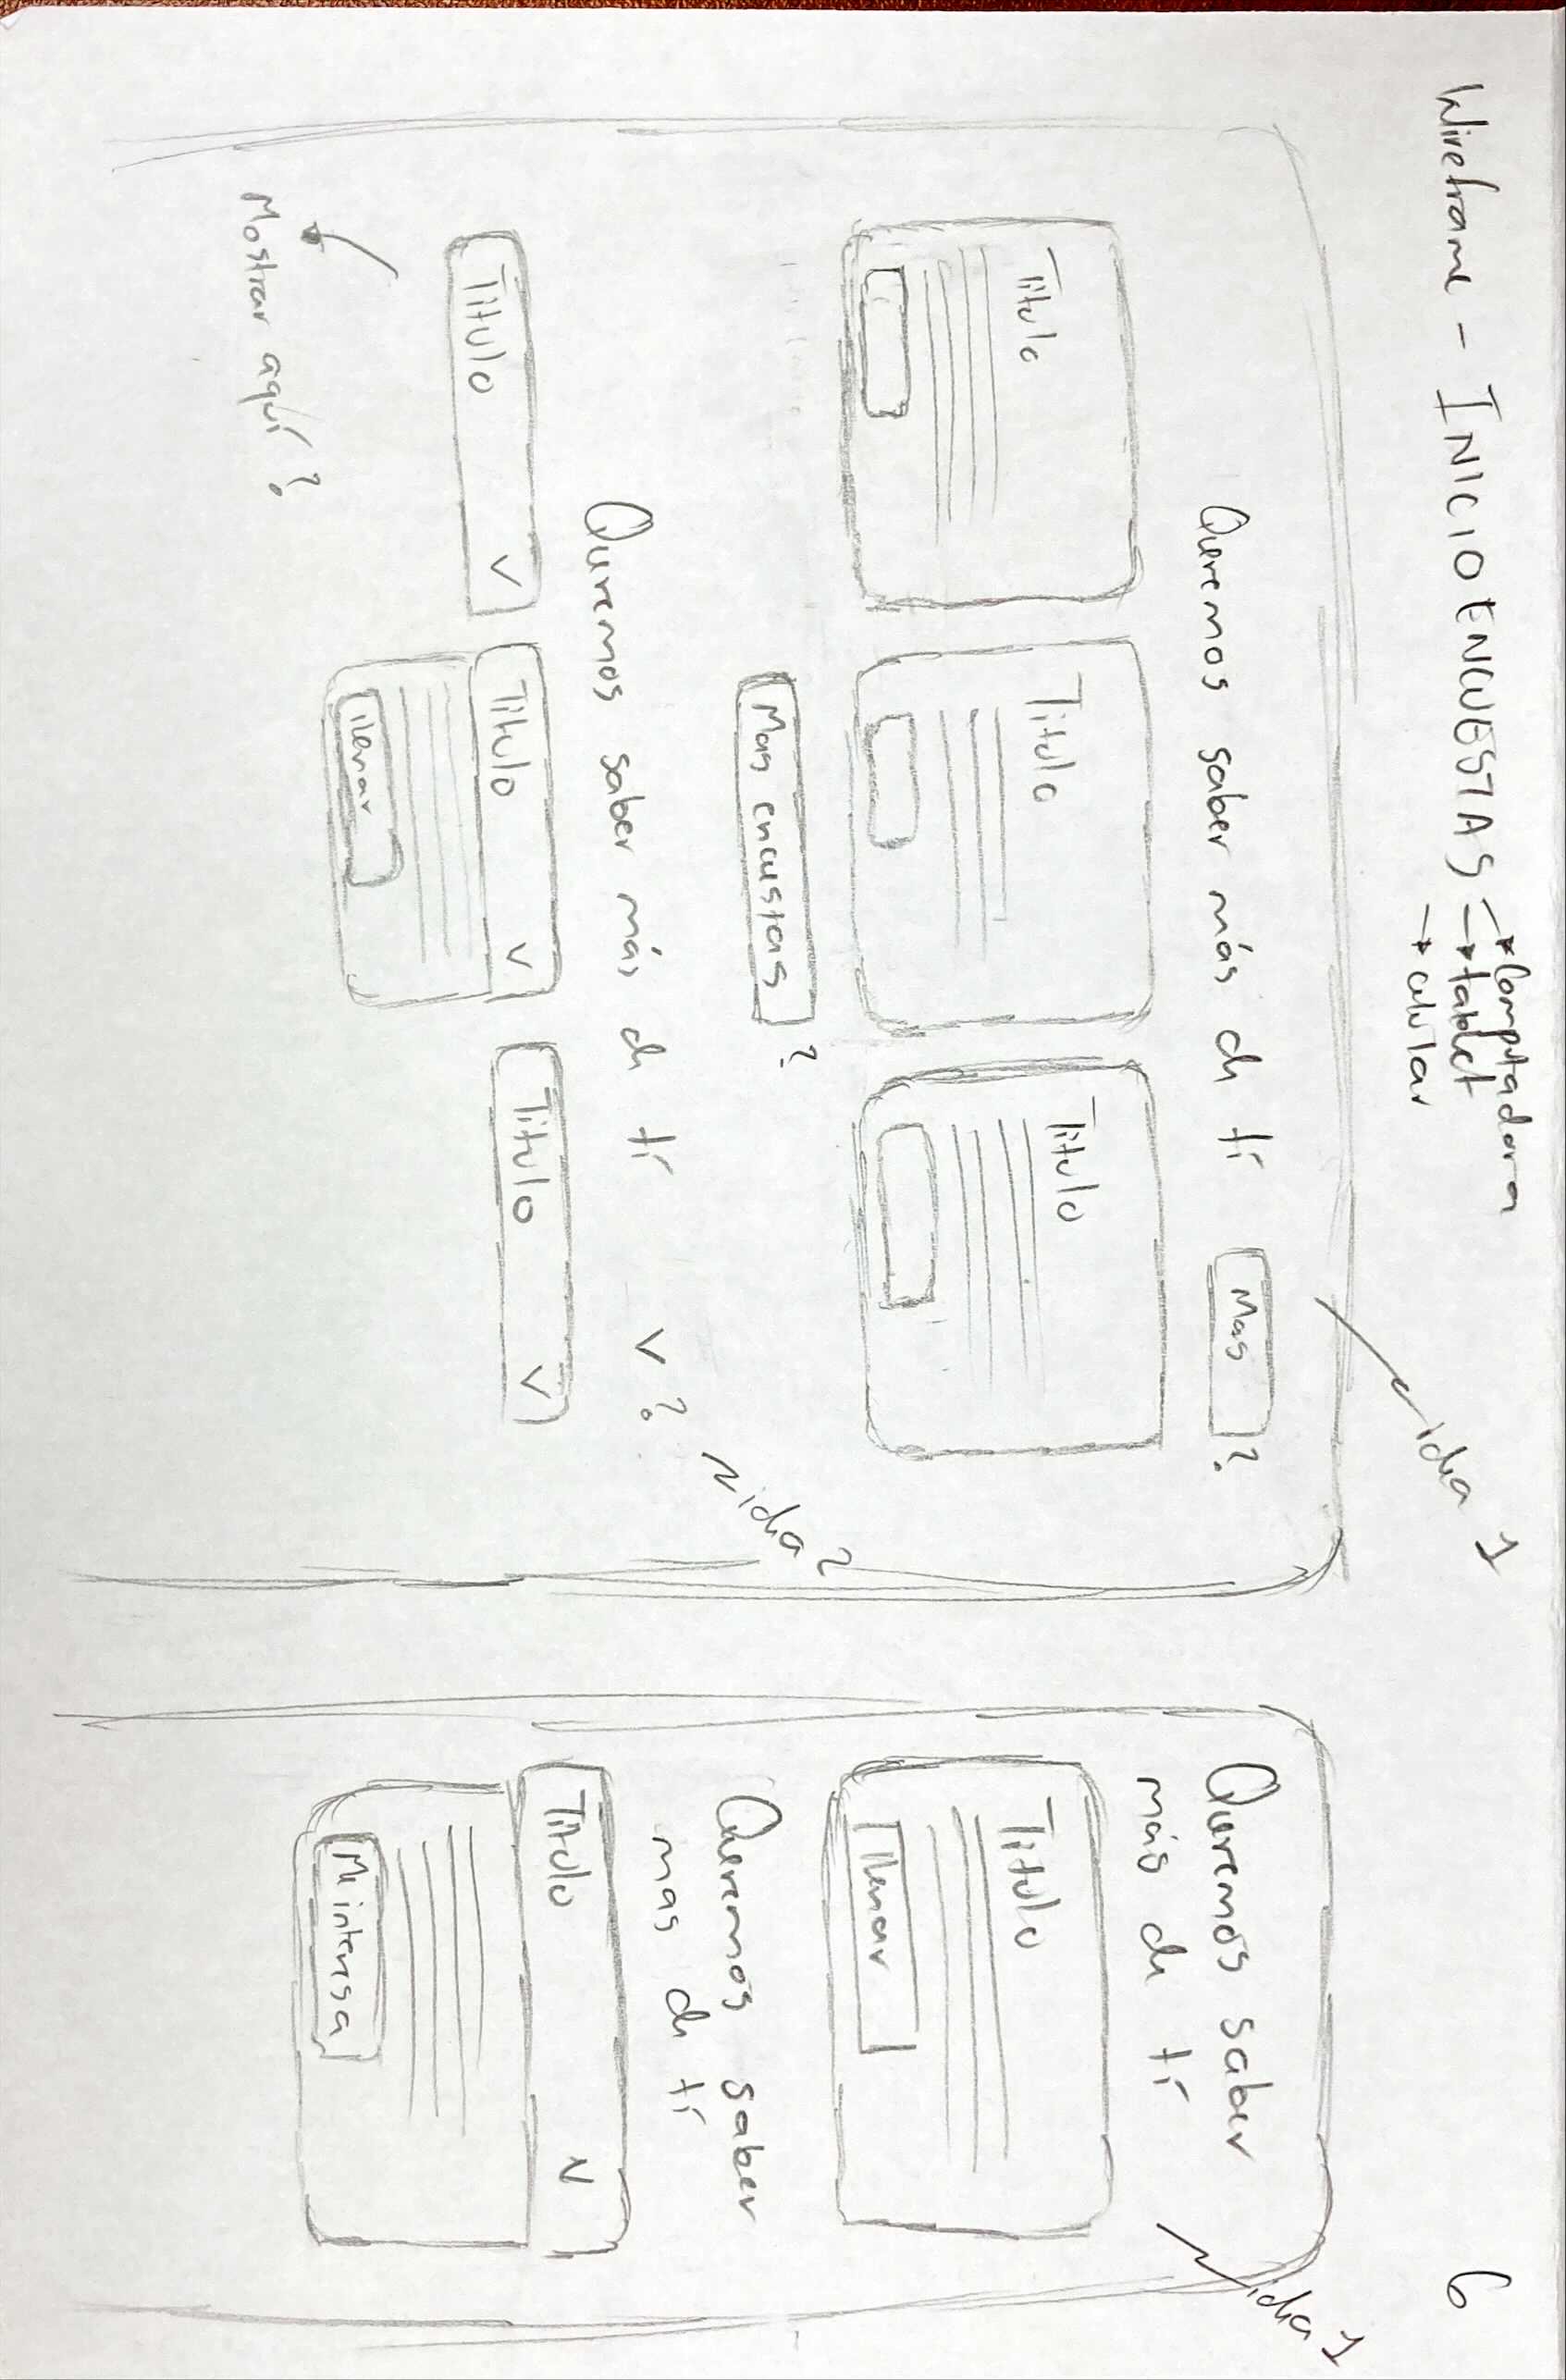 Wireframe - INICIO ENCUESTAS → Computadora
→ tablet
→ celular
6
idea 1
Queremos saber más de tí Mas ?
Titulo
Titulo
Titulo
Mas encustas ?
idea 2
Queremos saber más de tí V ?
Titulo V
Titulo V
Titulo V
llenar
Mostrar aquí ?
idea 1
Queremos saber
más de tí
Titulo
llenar
Queremos saber
mas de tí
Titulo V
Me interesa